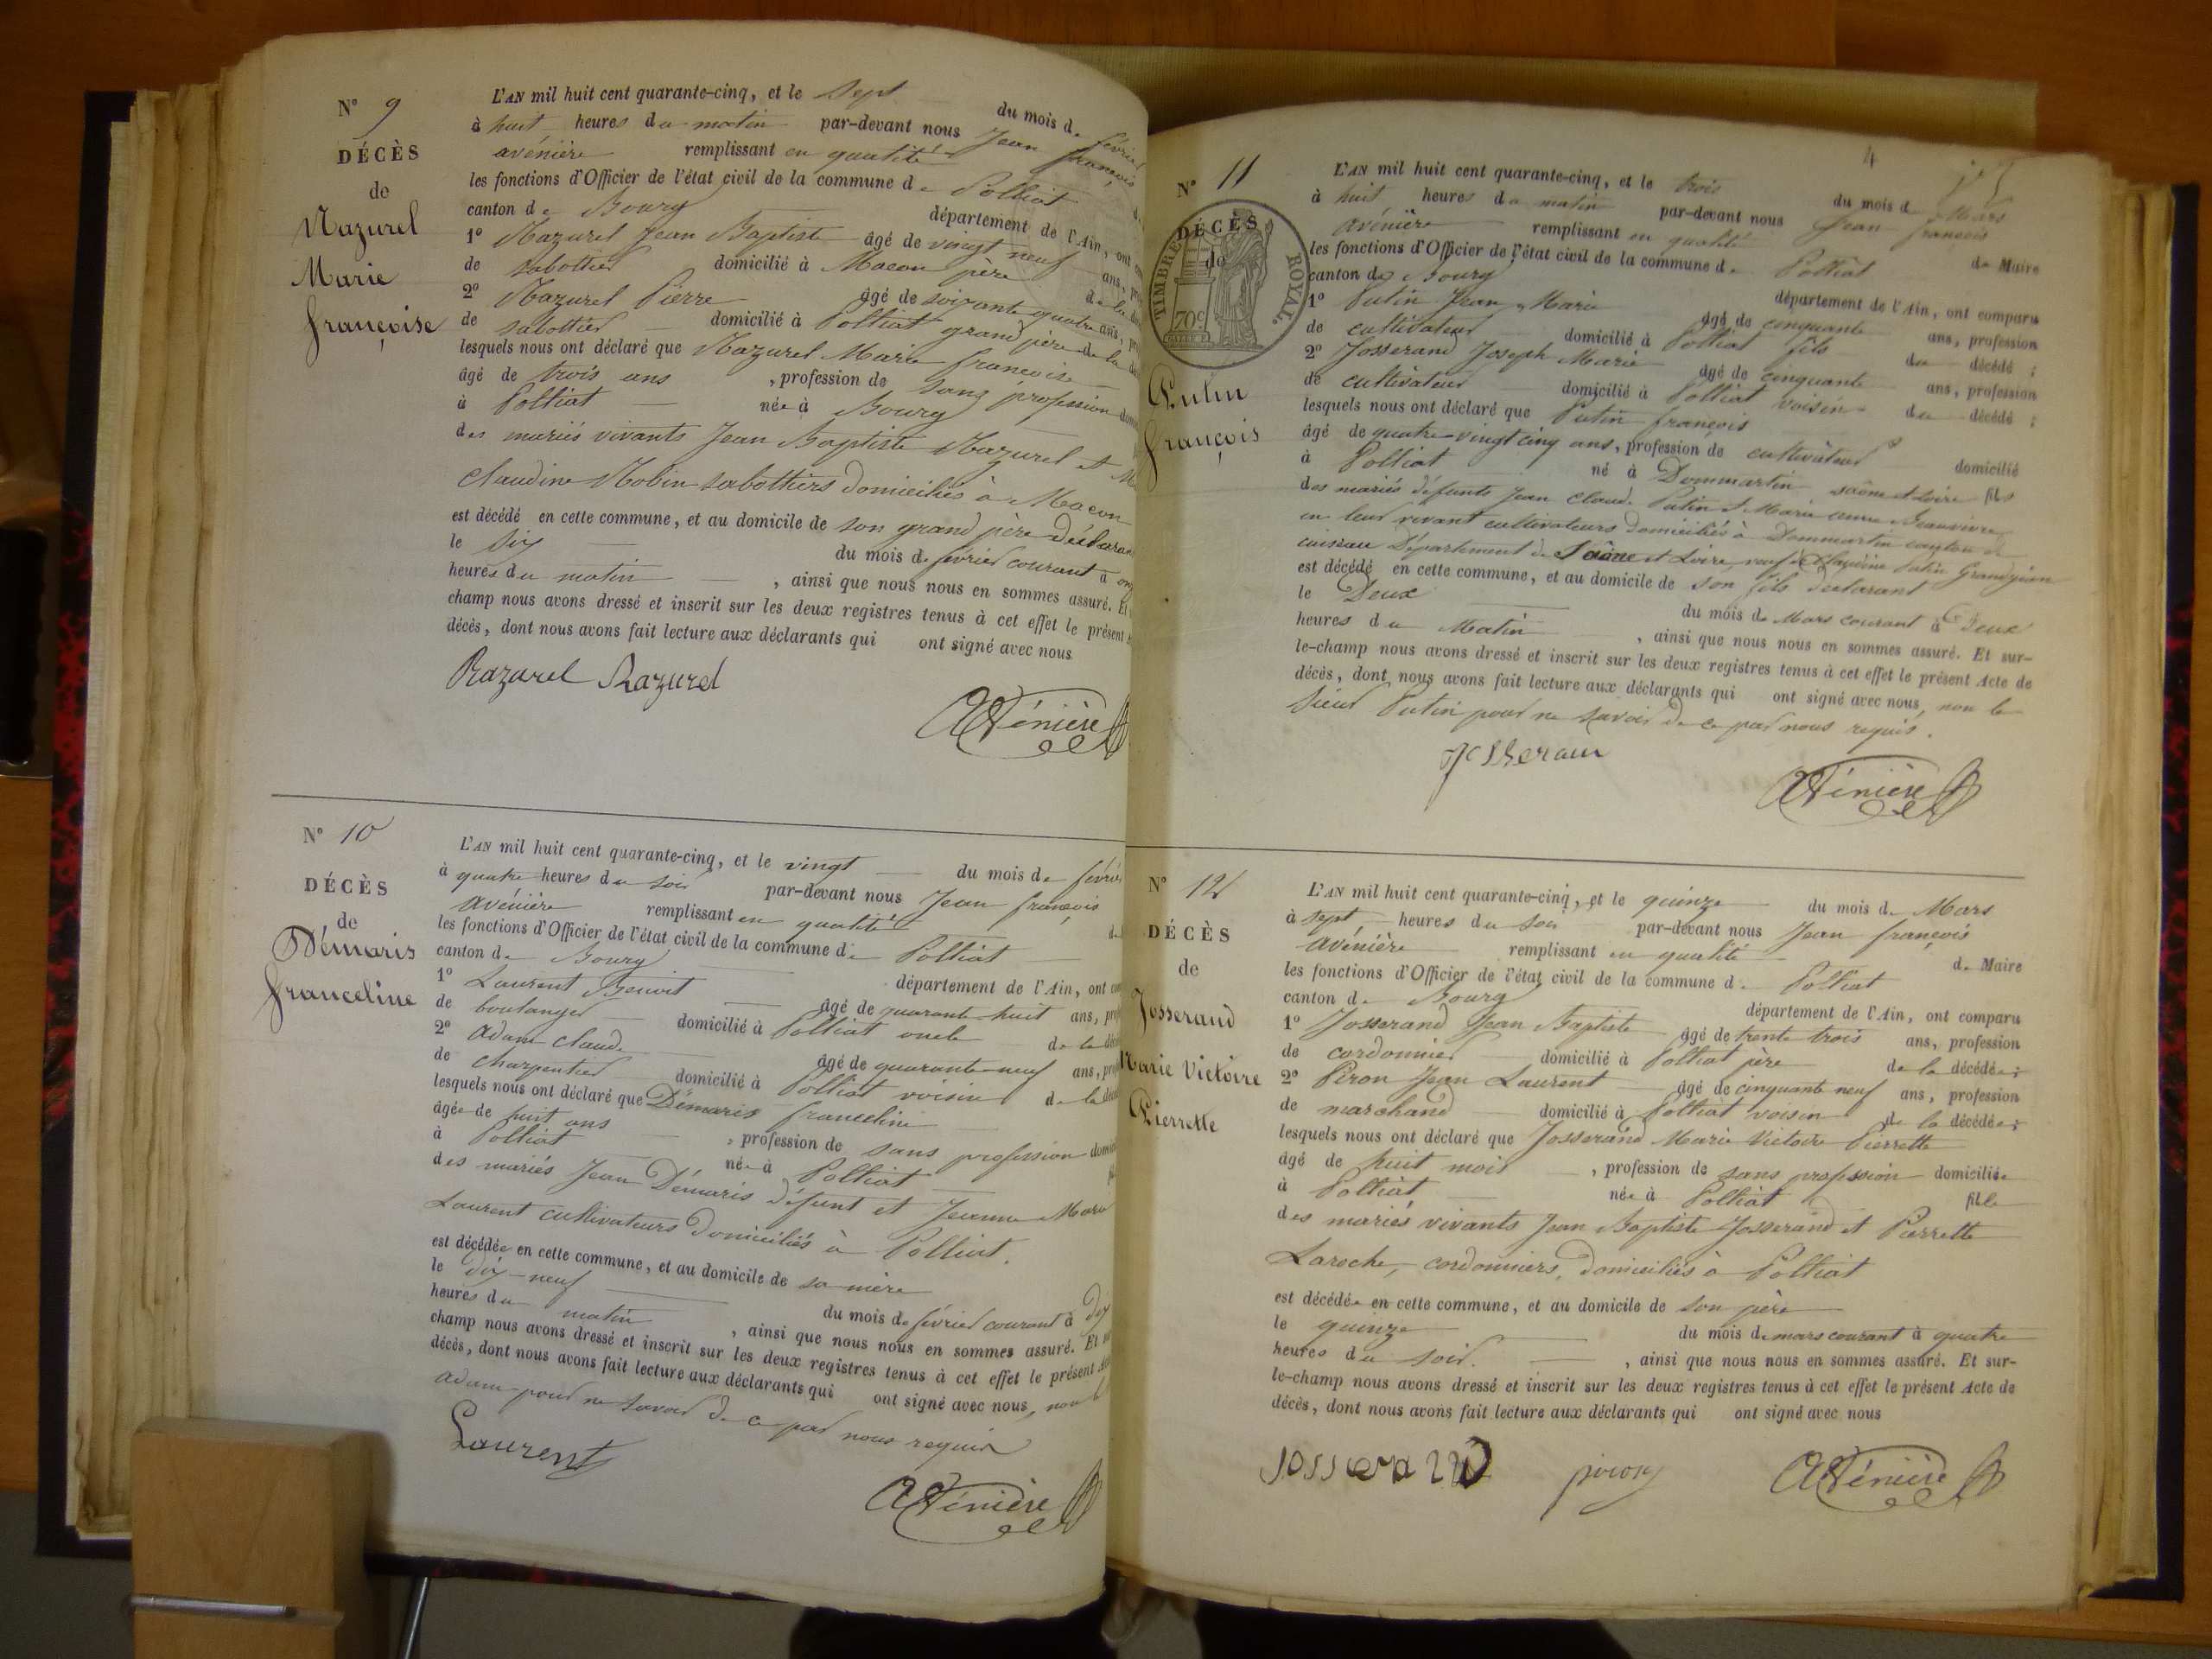 N° 9
DÉCÈS
de
Mazurel
Marie
françoise
L'AN mil huit cent quarante-cinq, et le sept du mois de février
à huit heures du matin par-devant nous Jean françois
avénière remplissant en qualité
les fonctions d'Officier de l'état civil de la commune de Polliat
canton de Bourg département de l'Ain, ont
1° Mazurel Jean Baptiste âgé de vingt neuf ans,
de sabottier domicilié à Macon père de la
2° Mazurel Pierre âgé de soixante quatre ans,
de sabottier domicilié à Polliat grand père de la
lesquels nous ont déclaré que Mazurel Marie francoise
âgé de trois ans , profession de sans profession
à Polliat née à Bourg
des mariés vivants Jean Baptiste Mazurel et
claudine Robin sabottiers domiciliés à Macon
est décédé en cette commune, et au domicile de son grand père déclarant
le six du mois de février courant à
heures du matin , ainsi que nous nous en sommes assuré. Et
champ nous avons dressé et inscrit sur les deux registres tenus à cet effet le présent
décès, dont nous avons fait lecture aux déclarants qui ont signé avec nous
Razurel Razurel
Avénière
N° 10
DÉCÈS
de
Démaris
franceline
L'AN mil huit cent quarante-cinq, et le vingt du mois de février
à quatre heures du soir par-devant nous Jean françois
avénière remplissant en qualité
les fonctions d'Officier de l'état civil de la commune de Polliat
canton de Bourg département de l'Ain, ont
1° Laurent Benoit âgé de quarante-huit ans,
de boulanger domicilié à Polliat oncle de la
2° Adam claude âgé de quarante-neuf ans,
de charpentier domicilié à Polliat voisin de la
lesquels nous ont déclaré que Démaris franceline
âgée de huit ans , profession de sans profession
à Polliat née à Polliat
des mariés Jean Démaris défunt et Jeanne Marie
Laurent cultivateurs domiciliés à Polliat.
est décédée en cette commune, et au domicile de sa mère
le dix-neuf du mois de février courant à dix
heures du matin , ainsi que nous nous en sommes assuré. Et
champ nous avons dressé et inscrit sur les deux registres tenus à cet effet le présent
décès, dont nous avons fait lecture aux déclarants qui ont signé avec nous, non le
adam pour ne savoir de ce par nous requis
Laurent
Avénière
4
N° 11
DÉCÈS
de
TIMBRE ROYAL.
70c
Putin
françois
L'AN mil huit cent quarante-cinq, et le trois du mois de Mars
à huit heures du matin par-devant nous Jean françois
avénière remplissant en qualité de Maire
les fonctions d'Officier de l'état civil de la commune de Polliat
canton de Bourg département de l'Ain, ont comparu
1° Putin Jean Marie âgé de cinquante ans, profession
de cultivateur domicilié à Polliat fils du décédé ;
2° Josserand Joseph Marie âgé de cinquante ans, profession
de cultivateur domicilié à Polliat voisin du décédé ;
lesquels nous ont déclaré que Putin françois
âgé de quatre-vingt cinq ans, profession de cultivateur domicilié
à Polliat né à Dommartin saône et Loire fils
des mariés défunts Jean claude Putin et Marie anne
en leur vivant cultivateurs domiciliés à Dommartin canton de
cuiseau Département de Saône et Loire, veuf de Claudine
est décédé en cette commune, et au domicile de son fils déclarant
le Deux du mois de Mars courant à Deux
heures du Matin , ainsi que nous nous en sommes assuré. Et sur-
le-champ nous avons dressé et inscrit sur les deux registres tenus à cet effet le présent Acte de
décès, dont nous avons fait lecture aux déclarants qui ont signé avec nous, non le
sieur Putin pour ne savoir de ce par nous requis.
Avénière
N° 12
DÉCÈS
de
Josserand
Marie Victoire
Pierrette
L'AN mil huit cent quarante-cinq, et le quinze du mois de Mars
à sept heures du soir par-devant nous Jean françois
avénière remplissant en qualité de Maire
les fonctions d'Officier de l'état civil de la commune de Polliat
canton de Bourg département de l'Ain, ont comparu
1° Josserand Jean Baptiste âgé de trente trois ans, profession
de cordonnier domicilié à Polliat père de la décédée ;
2° Piron Jean Laurent âgé de cinquante neuf ans, profession
de marchand domicilié à Polliat voisin de la décédée ;
lesquels nous ont déclaré que Josserand Marie Victoire Pierrette
âgé de huit mois , profession de sans profession domiciliée
à Polliat née à Polliat fille
des mariés vivants Jean Baptiste Josserand et Pierrette
Laroche, cordonniers, domiciliés à Polliat
est décédée en cette commune, et au domicile de son père
le quinze du mois de mars courant à quatre
heures du soir. , ainsi que nous nous en sommes assuré. Et sur-
le-champ nous avons dressé et inscrit sur les deux registres tenus à cet effet le présent Acte de
décès, dont nous avons fait lecture aux déclarants qui ont signé avec nous
Josserand piron Avénière